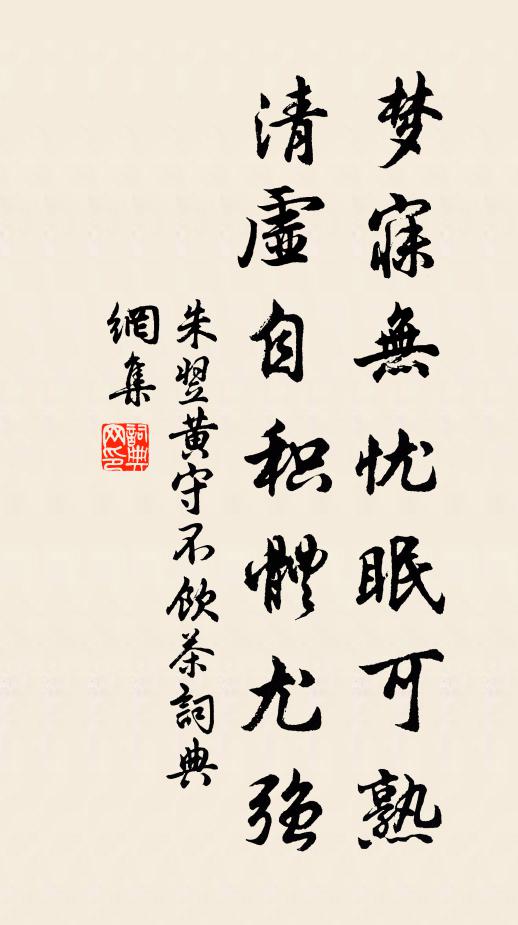 梦寐無忧眠可熟
清虛自积體尤强
朱翌黄守不飲茶詞典
網集
詞典
网印